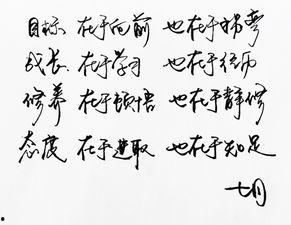 目标 在于向前 也在于转弯
成长 在于学习 也在于经历
修养 在于顿悟 也在于静修
态度 在于进取 也在于知足
七月